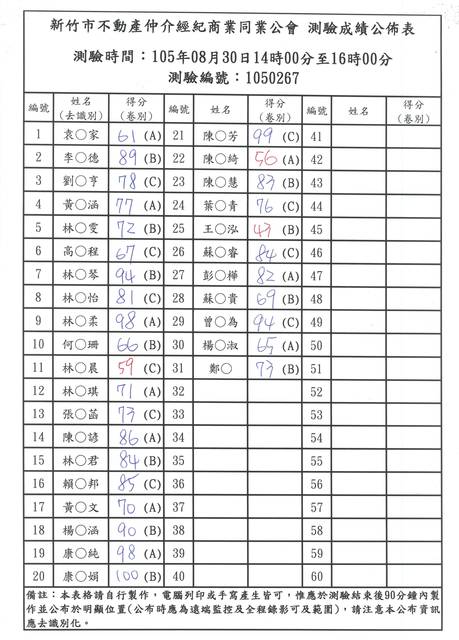 新竹市不動產仲介經紀商業同業公會 測驗成績公佈表
測驗時間：105年08月30日14時00分至16時00分
測驗編號：1050267
編號 姓名(去識別) 得分(卷別) 編號 姓名(去識別) 得分(卷別) 編號 姓名 得分(卷別)
1 袁○家 61 (A) 21 陳○芳 99 (C) 41
2 李○德 89 (B) 22 陳○綺 56 (A) 42
3 劉○亨 78 (C) 23 陳○慧 83 (B) 43
4 黃○涵 77 (A) 24 葉○青 76 (C) 44
5 林○雯 72 (B) 25 王○泓 (B) 45
6 高○程 67 (C) 26 蘇○睿 84 (C) 46
7 林○琴 94 (B) 27 彭○樺 82 (A) 47
8 林○怡 81 (C) 28 蘇○貴 69 (B) 48
9 林○柔 98 (A) 29 曾○為 94 (C) 49
10 何○珊 66 (B) 30 楊○淑 65 (A) 50
11 林○晨 59 (C) 31 鄭○ 73 (B) 51
12 林○琪 71 (A) 32 52
13 張○菡 73 (C) 33 53
14 陳○諺 86 (A) 34 54
15 林○君 84 (B) 35 55
16 賴○邦 85 (C) 36 56
17 黃○文 70 (A) 37 57
18 楊○涵 90 (B) 38 58
19 康○純 98 (A) 39 59
20 康○娟 100 (B) 40 60
備註：本表格請自行製作，電腦列印或手寫產生皆可，惟應於測驗結束後90分鐘內製
作並公布於明顯位置(公布時應為遠端監控及全程錄影可及範圍)，請注意本公布資訊
應去識別化。